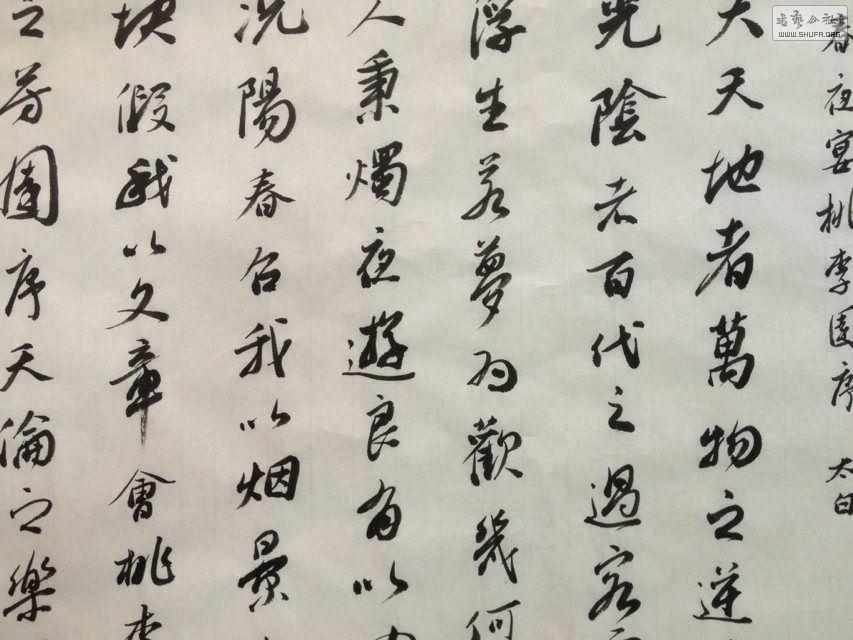 春夜宴桃李園序 太白
夫天地者萬物之逆
光陰者百代之過客而
浮生若夢為歡幾何
人秉燭夜遊良有以也
況陽春召我以烟景
塊假我以文章會桃李
之芳園序天倫之樂
書藝公社
WWW.SHUFA.ORG